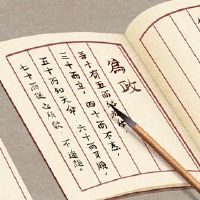 為政
吾十有五而
三十而立，四十而不惑，
五十而知天命，六十而耳順，
七十而從心所欲，不踰矩。